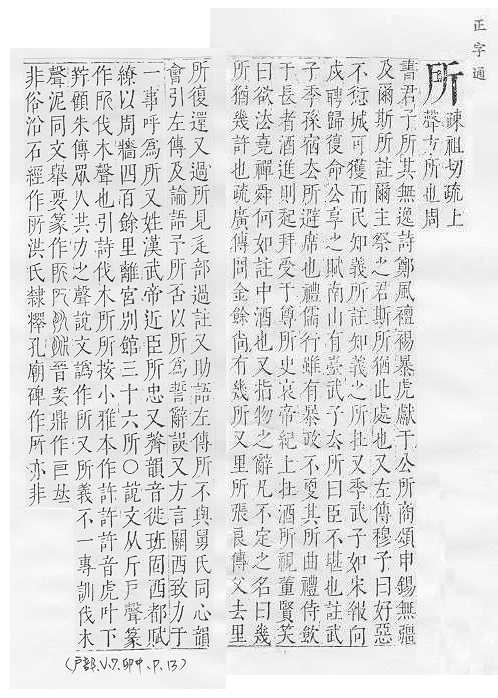 正字通
所
疎祖切疏上
聲方所也周
書君子所其無逸詩鄭風襢裼暴虎獻于公所商頌申錫無疆
及爾斯所註爾主祭之君斯所猶此處也又左傳穆子曰好惡
不愆城可獲而民知義所註知義之所在又季武子如宋報向
戍聘歸復命公享之賦南山有臺武子去所曰臣不堪也註武
子季孫宿去所避席也禮儒行雖有暴政不更其所曲禮侍飲
于長者酒進則起拜受于尊所史哀帝紀上在酒所視董賢笑
曰欲法堯禪舜何如註中酒也又指物之辭凡不定之名曰幾
所猶幾許也疏廣傳問金餘尚有幾所又里所張良傳父去里
所復還又過所見辵部過註又助語左傳所不與舅氏同心韻
會引左傳及論語予所否以所為誓辭誤又方言關西致力于
一事呼為所又姓漢武帝近臣所忠又聲韻音徙班固西都賦
繚以周牆四百餘里離宮別館三十六所○說文从斤戶聲篆
作所伐木聲也引詩伐木所所按小雅本作許許許音虎叶下
羜顧朱傳眾人共力之聲說文譌作所又所義不一專訓伐木
聲泥同文舉要篆作 晉姜鼎作
非俗沿石經作所洪氏隸釋孔廟碑作所亦非
(戶部、V.7.卯中、P.13)